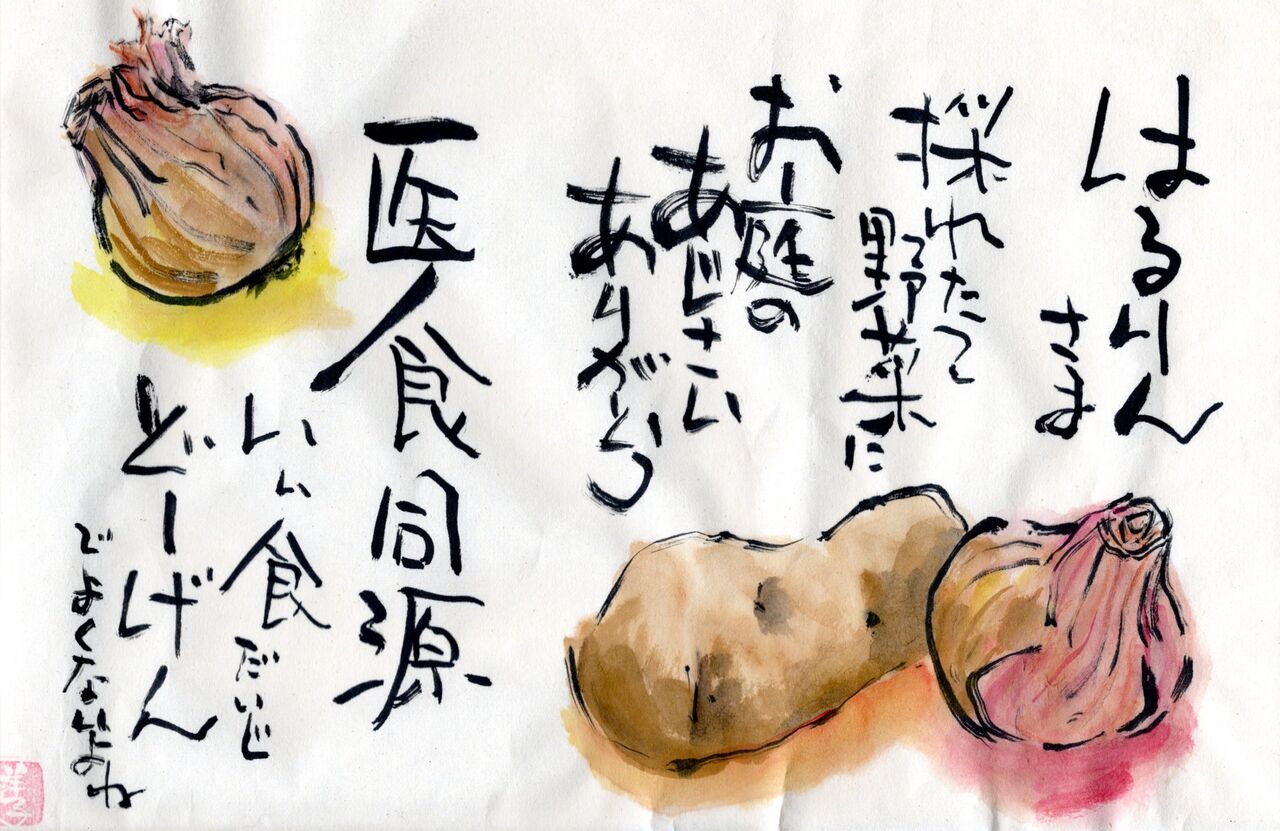 はるりん
さま
採れたて
野菜に
お庭の
あじさい
ありがとう
医食同源
いい食だいじ
どーげん
でよくないよね